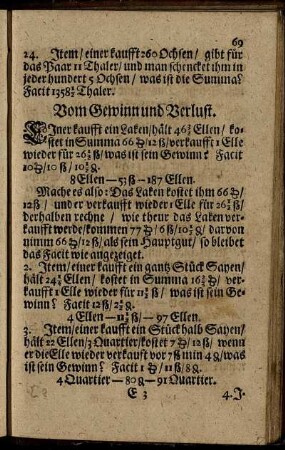 69
24. Item/ einer kaufft 260 Ochsen/ gibt für
das Paar 11 Thaler/ und man schencket ihm in
jeder hundert 5 Ochsen/ was ist die Summa?
Facit 1358½ Thaler.
Vom Gewinn und Verlust.
EIner kaufft ein Laken/ hält 46¾ Ellen/ ko-
stet in Summa 66 ₰/ 12 ß/ verkaufft 1 Elle
wieder für 26½ ß/ was ist sein Gewinn? Facit
10 ₰/ 10 ß/ 10½ g.
8 Ellen — 53 ß — 187 Ellen.
Mache es also: Das Laken kostet ihm 66 ₰/
12 ß/ und er verkaufft wieder 1 Elle für 26½ ß/
derhalben rechne/ wie theur das Laken ver-
kaufft werde/ kommen 77 ₰/ 6 ß/ 10½ g/ darvon
nimm 66 ₰/ 12 ß/ als sein Hauptgut/ so bleibet
das Facit wie angezeiget.
2. Item/ einer kaufft ein gantz Stück Sayen/
hält 24¼ Ellen/ kostet in Summa 16½ ₰/ ver-
kaufft 1 Elle wieder für 11½ ß/ was ist sein Ge-
winn? Facit 12 ß/ 2½ g.
4 Ellen — 11½ ß — 97 Ellen.
3. Item/ einer kaufft ein Stück halb Sayen/
hält 22 Ellen/ 3 Quartier/ kostet 7 ₰/ 12 ß/ wenn
er die Elle wieder verkauft vor 7 ß min 4 g/ was
ist sein Gewinn? Facit 1 ₰/ 11 ß/ 8 g.
4 Quartier — 80 g — 91 Quartier.
E 3 4. J.